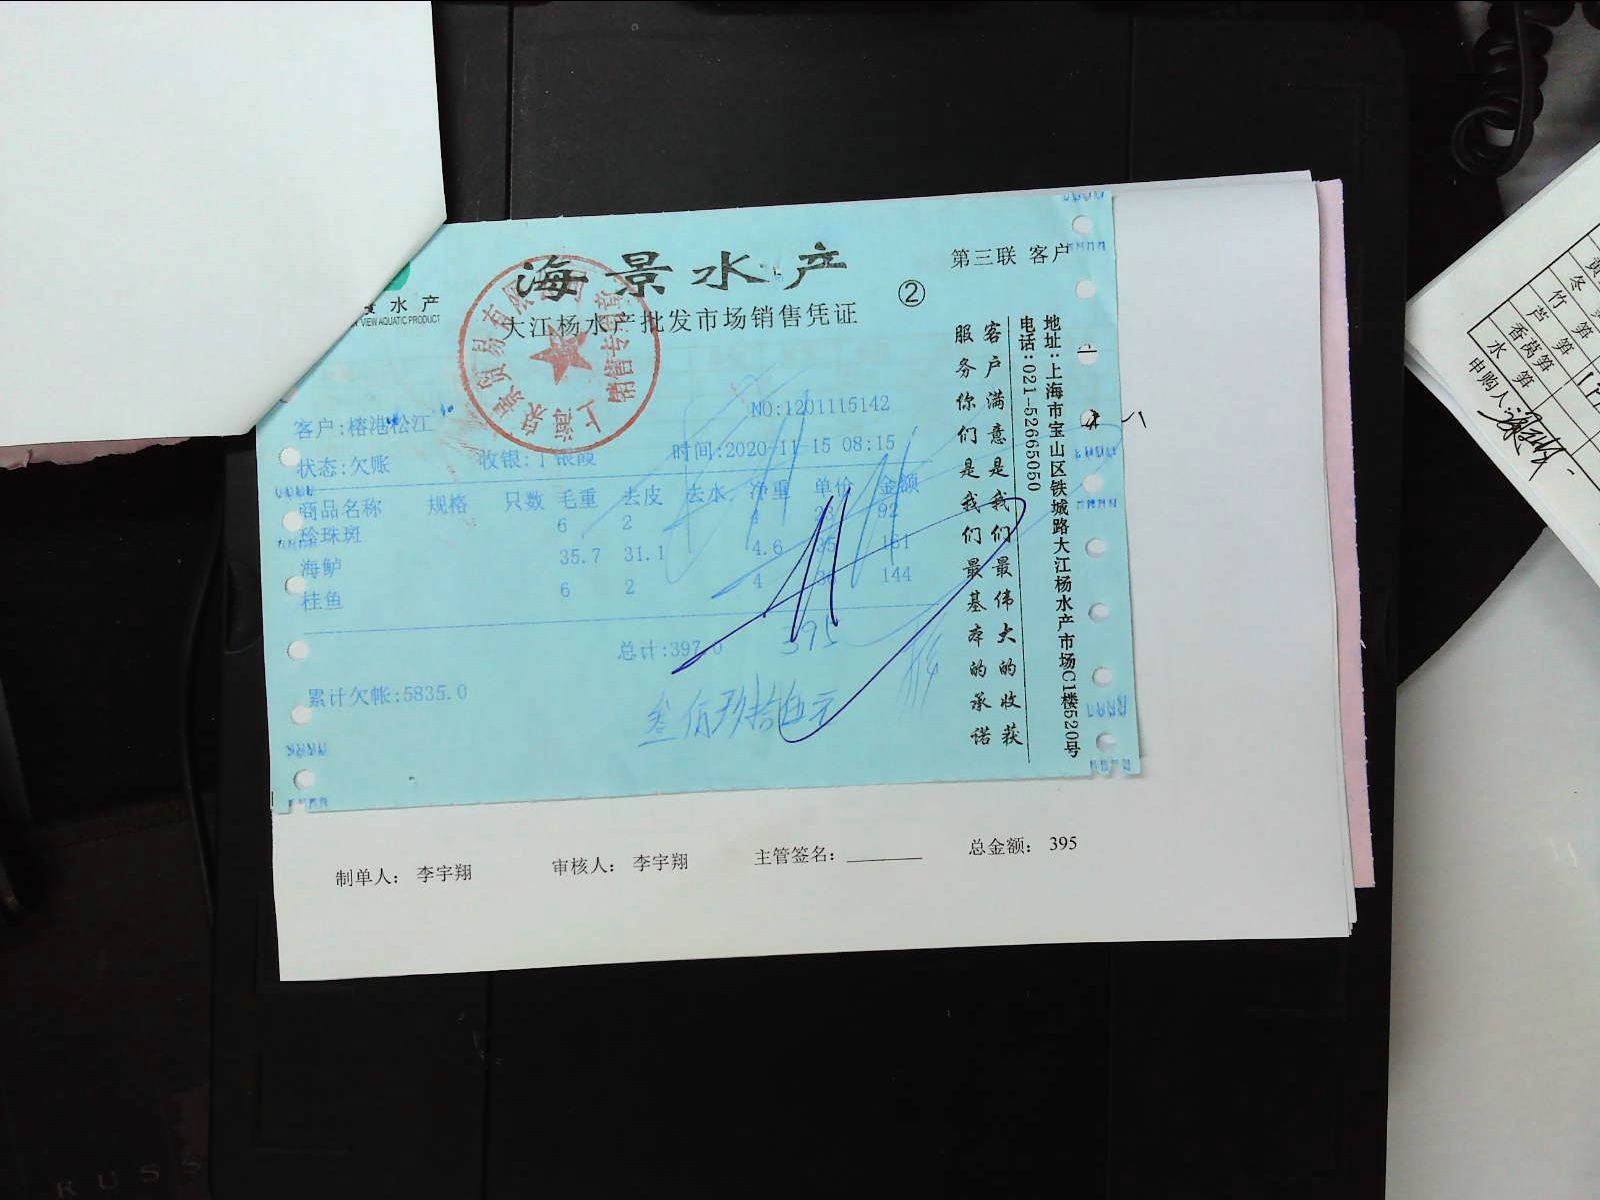 海景水产
大江杨水产批发市场销售凭证
②
第三联 客户
水产
VIEW AQUATIC PRODUCT
销售专用章
客户:榕港松江
NO:1201115142
状态:欠账
收银:
时间:2020-11-15 08:15
商品名称 规格 只数 毛重 去皮 去水 净重 单价 金额
珍珠斑 6 2 4 23 92
海鲈 35.7 31.1 4.6 35 161
桂鱼 6 2 4 144
总计:397.0
395
累计欠帐:5835.0
叁佰玖拾伍元
地址:上海市宝山区铁城路大江杨水产市场C1楼520号
电话:021-52665050
客户满意是我们最伟大的收获
服务你们是我们最基本的承诺
制单人: 李宇翔
审核人: 李宇翔
主管签名:
总金额: 395
冬笋
竹笋
芦笋
香莴笋
水笋
申购人
RUSS